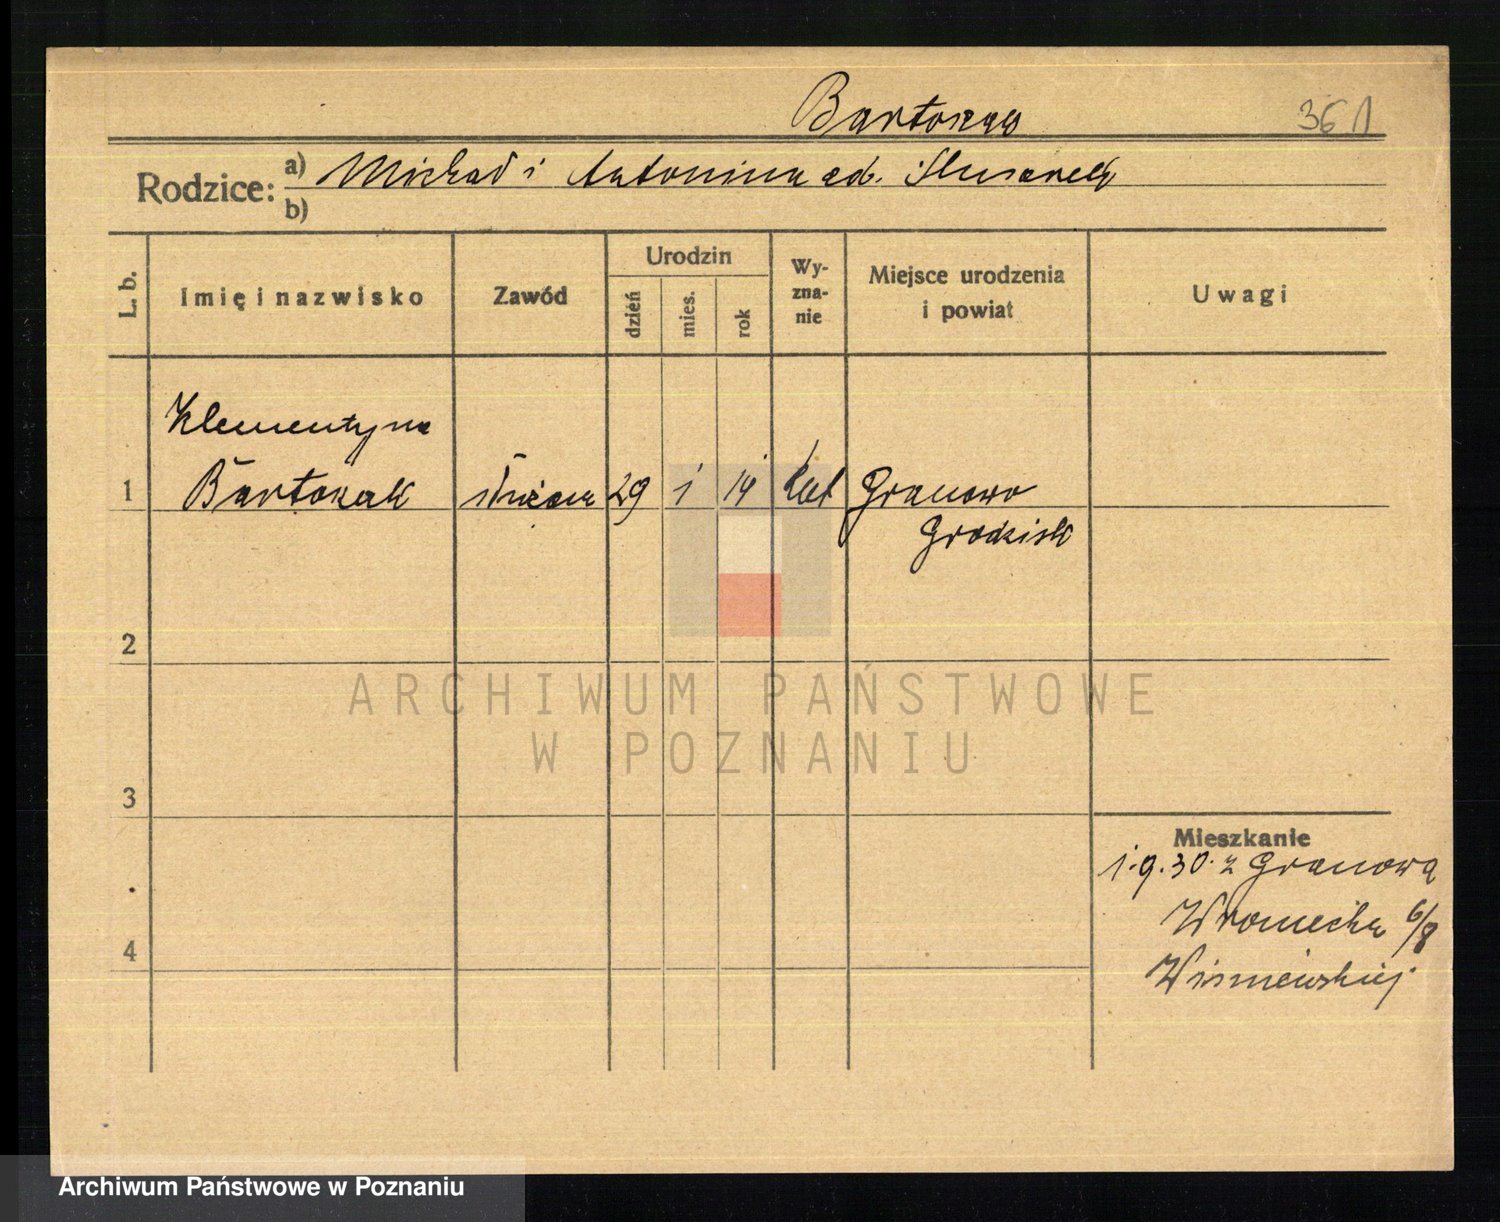 Bartozak
361
Rodzice: a) Michał i Antonina zd. Ślusarek
b)
L. b.
Imię i nazwisko
Zawód
Urodzin
dzień
mies.
rok
Wy-
zna-
nie
Miejsce urodzenia
i powiat
Uwagi
Klementyna
1 Bartozak służąca 29 1 14 kat Granowo
Grodzisk
2
ARCHIWUM PAŃSTWOWE
W POZNANIU
3
Mieszkanie
1.9.30. z Granowa
Wroniecka 6/8
4
Wiśniewskiej
Archiwum Państwowe w Poznaniu